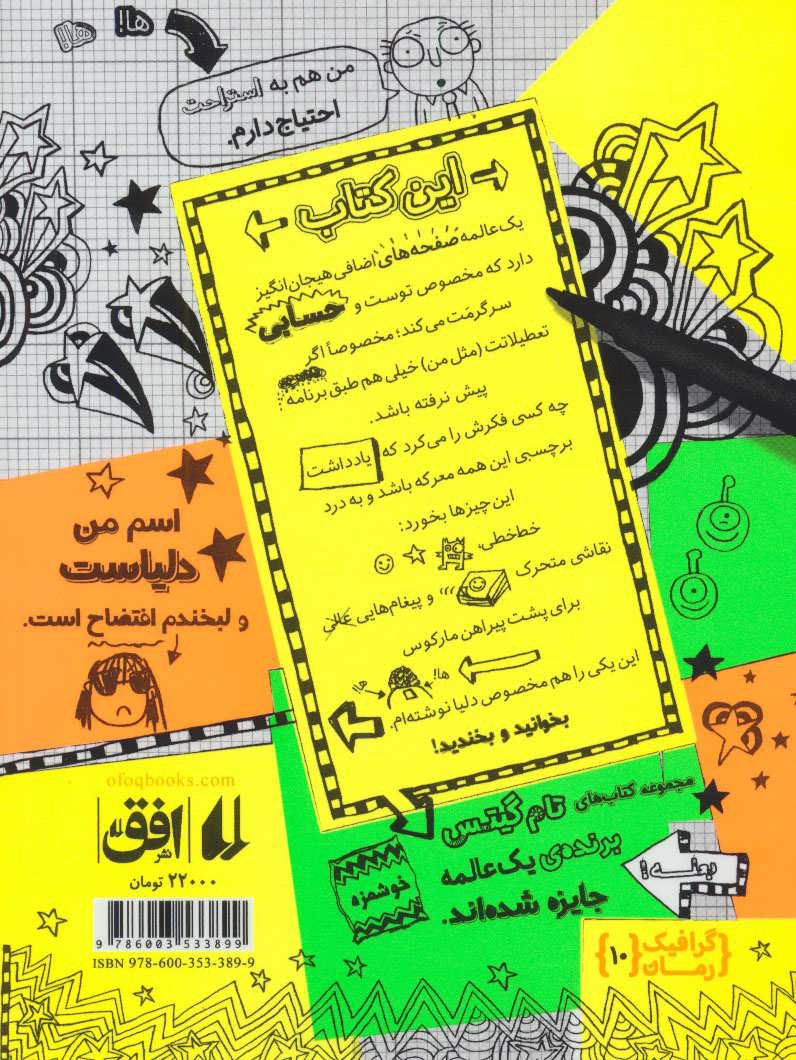 ها!
ها!
من هم به استراحت
احتیاج دارم.
این کتاب
یک‌عالمه صفحه‌های اضافی هیجان‌انگیز
دارد که مخصوص توست و حسابی
سرگرمت می‌کند؛ مخصوصاً اگر
تعطیلاتت (مثل من) خیلی هم طبق برنامه
پیش نرفته باشد.
چه کسی فکرش را می‌کرد که یادداشت
برچسبی این همه معرکه باشد و به درد
این چیزها بخورد:
خط‌خطی،
نقاشی متحرک
و پیغام‌هایی عالی
برای پشت پیراهن مارکوس
ها!
ها!
این یکی را هم مخصوص دلیا نوشته‌ام.
بخوانید و بخندید!
اسم من
دلیاست
و لبخندم افتضاح است.
ofoqbooks.com
نشر افق
۲۲۰۰۰ تومان
9 786003 533899
ISBN 978-600-353-389-9
مجموعه کتاب‌های تام گیتس
برنده‌ی یک‌عالمه
جایزه شده‌اند.
خوشمزه
بعله!
گرافیک
رمان
{۱۰}